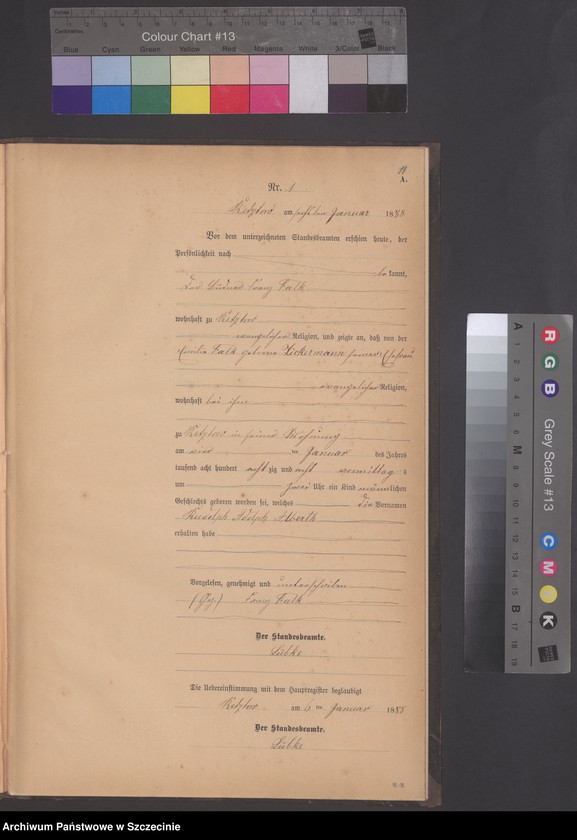 Inches 1 2 3 4 5 6 7 8
Centimetres 1 2 3 4 5 6 7 8 9 10 11 12 13 14 15 16 17 18 19
Colour Chart #13
Blue Cyan Green Yellow Red Magenta White 3/Color Black
11
A.
Nr. 1
Ketztow am sechsten Januar 1888
Vor dem unterzeichneten Standesbeamten erschien heute, der
Persönlichkeit nach
bekannt,
Der Büdner Franz Falk
wohnhaft zu Ketztow
evangelischer Religion, und zeigte an, daß von der
Emilie Falk geborene Zickermann seiner Ehefrau
evangelischer Religion,
wohnhaft bei ihm
zu Ketztow in seiner Wohnung
am vier ten Januar des Jahres
tausend acht hundert achtzig und acht vormittags
um zwei Uhr ein Kind männlichen
Geschlechts geboren worden sei, welches die Vornamen
Rudolph Adolph Alberth
erhalten habe
Vorgelesen, genehmigt und unterschrieben
(Gez.) Franz Falk
Der Standesbeamte.
Lübke
Die Uebereinstimmung mit dem Hauptregister beglaubigt
Ketztow am 6 ten Januar 1888
Der Standesbeamte.
Lübke
A 1 2 3 4 5 6 M 8 9 10 11 12 13 14 15 B 17 18 19
R G B
Grey Scale #13
C M Y K
Archiwum Państwowe w Szczecinie